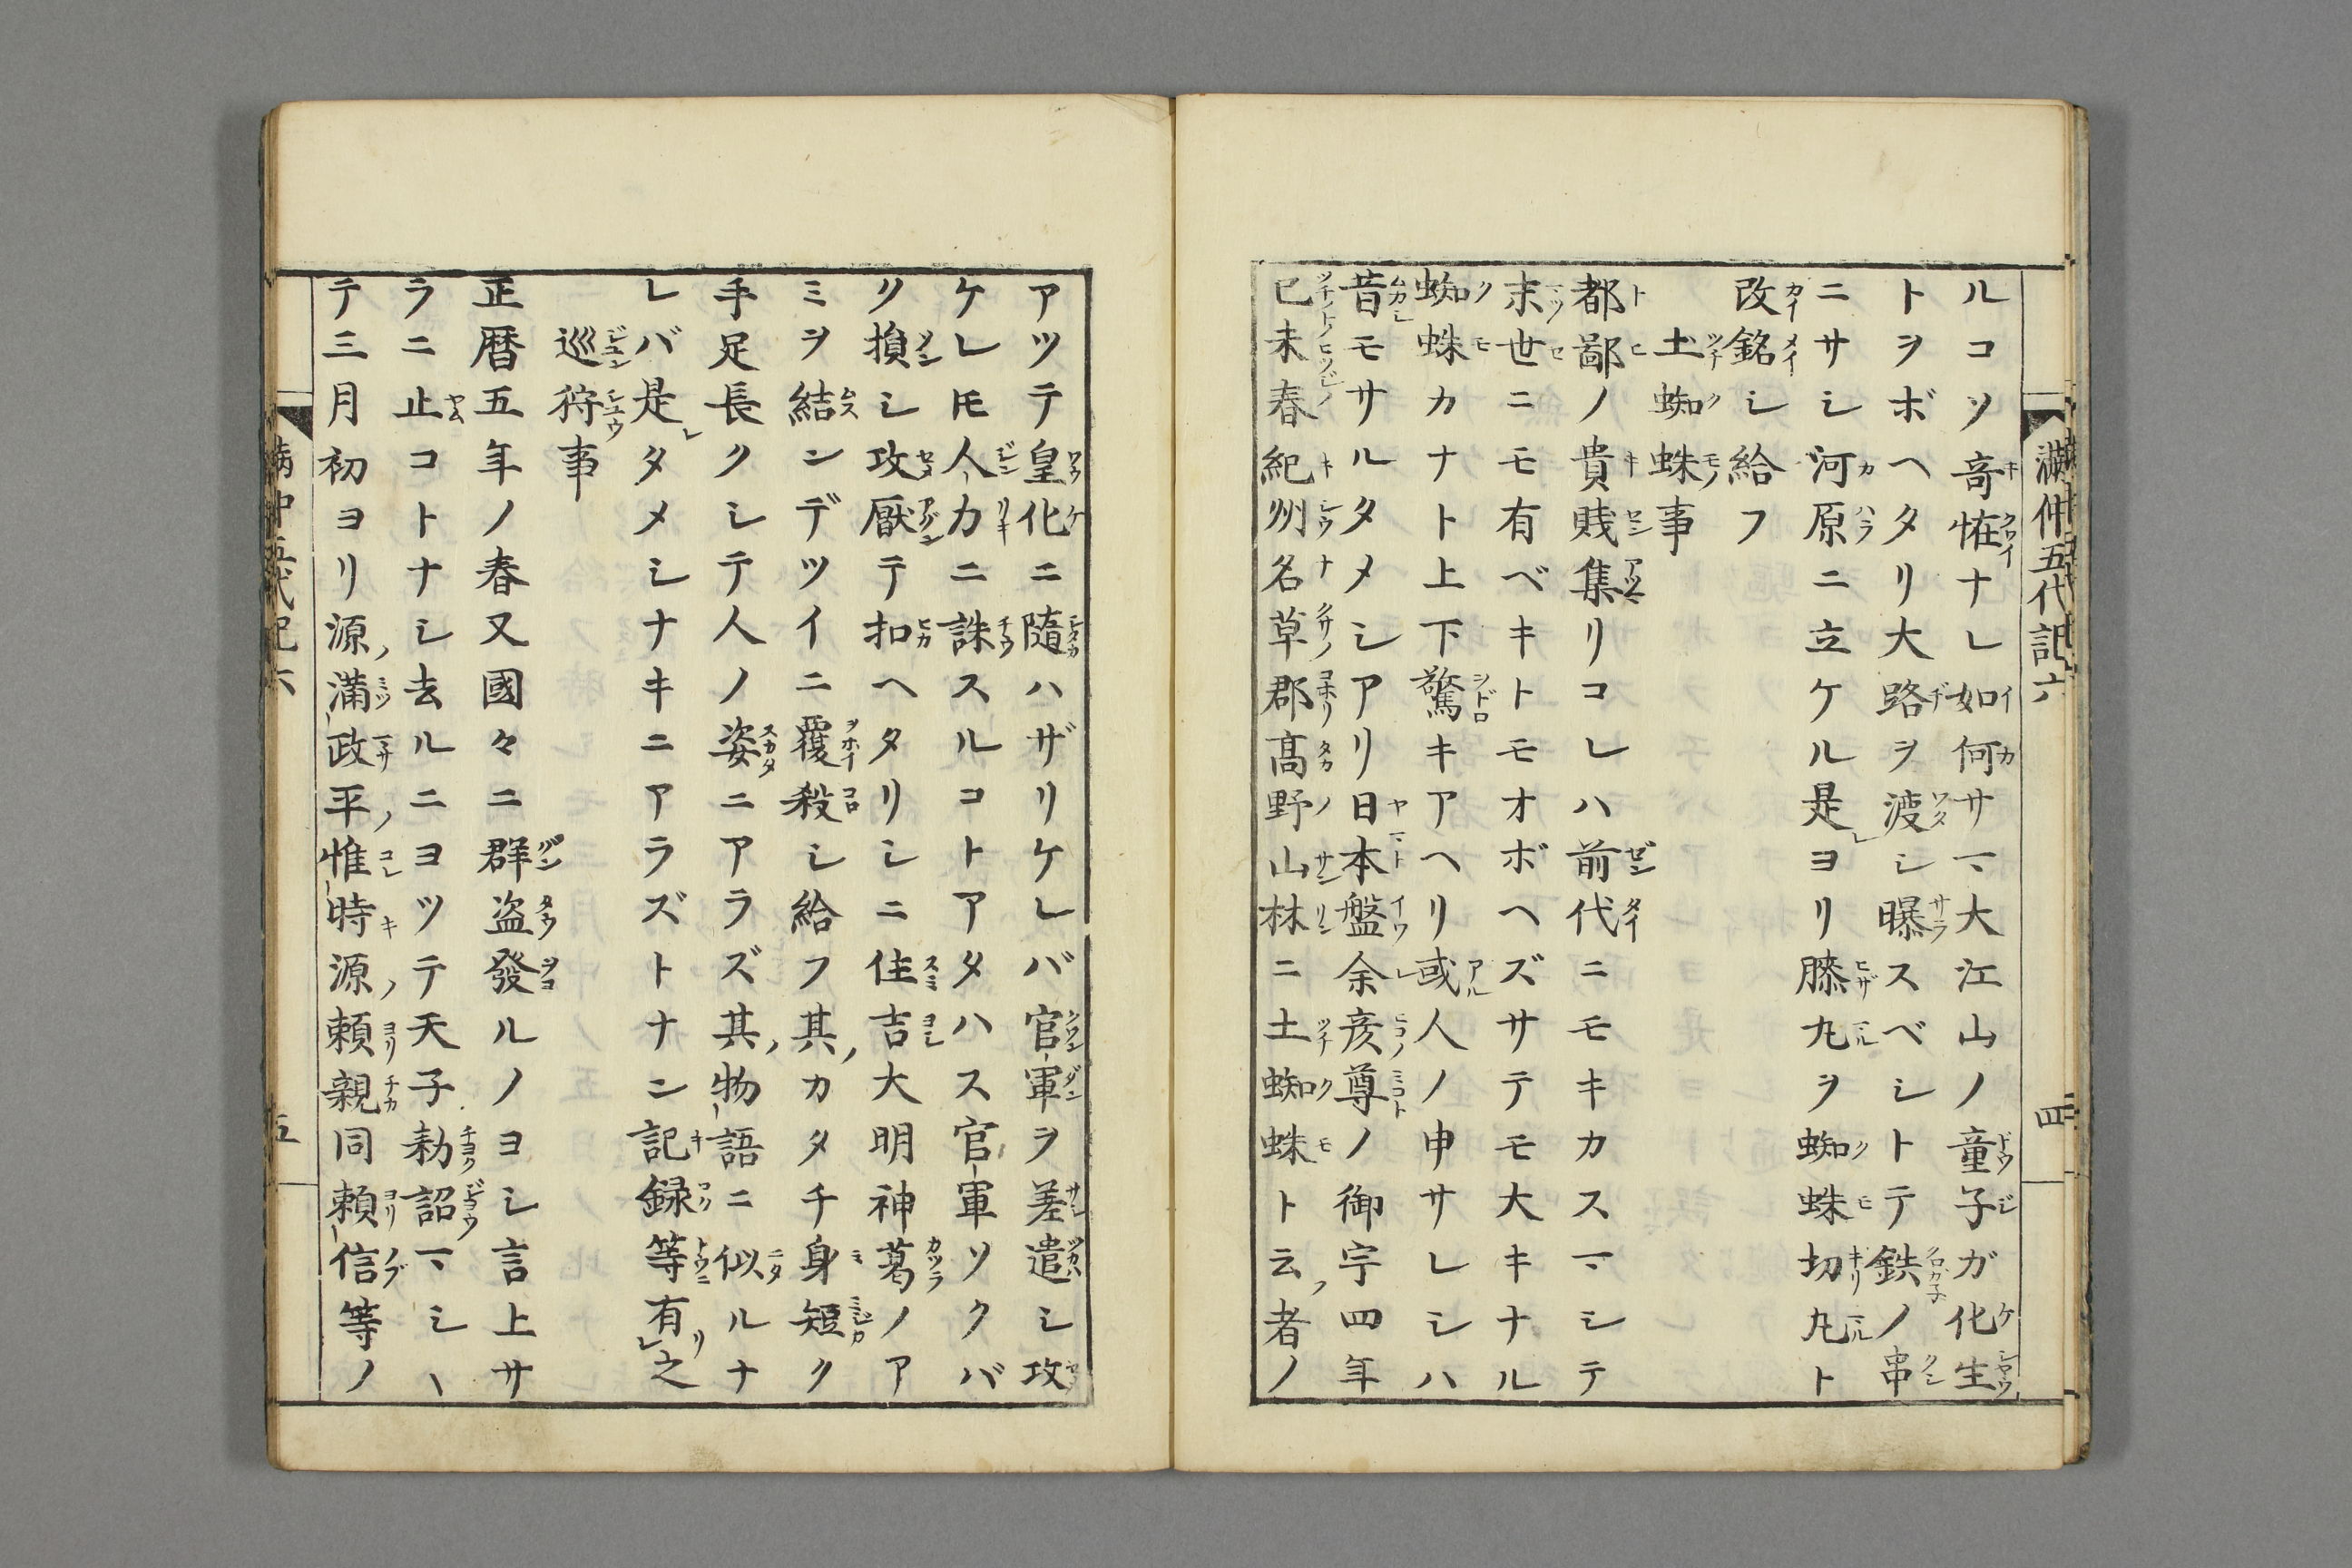 満仲五代記六
四
ルコソ竒恠ナレ如何サマ大江山ノ童子ガ化生
トヲボヘタリ大路ヲ渡シ曝スベシトテ鉄ノ串
ニサシ河原ニ立ケル是ヨリ膝丸ヲ蜘蛛切丸ト
改銘シ給フ
土蜘蛛事
都鄙ノ貴賎集リコレハ前代ニモキカスマシテ
末世ニモ有ベキトモオボヘズサテモ大キナル
蜘蛛カナト上下驚キアヘリ或人ノ申サレシハ
昔モサルタメシアリ日本盤余彦尊ノ御宇四年
己未春紀州名草郡髙野山林ニ土蜘蛛ト云者ノ
アツテ皇化ニ隨ハザリケレバ官軍ヲ差遣シ攻
ケレ𪜈人力ニ誅スルコトアタハス官軍ソクバ
リ損シ攻厭テ扣ヘタリシニ住吉大明神葛ノア
ミヲ結ンデツイニ覆殺シ給フ其カタチ身短ク
手足長クシテ人ノ姿ニアラズ其物語ニ似ルナ
レバ是タメシナキニアラズトナン記録等有之
巡狩事
正暦五年ノ春又國々ニ群盗發ルノヨシ言上サ
ラニ止コトナシ去ルニヨツテ天子勅詔マシヽ
テ三月初ヨリ源満政平惟時源頼親同頼信等ノ
満仲五代記六
五